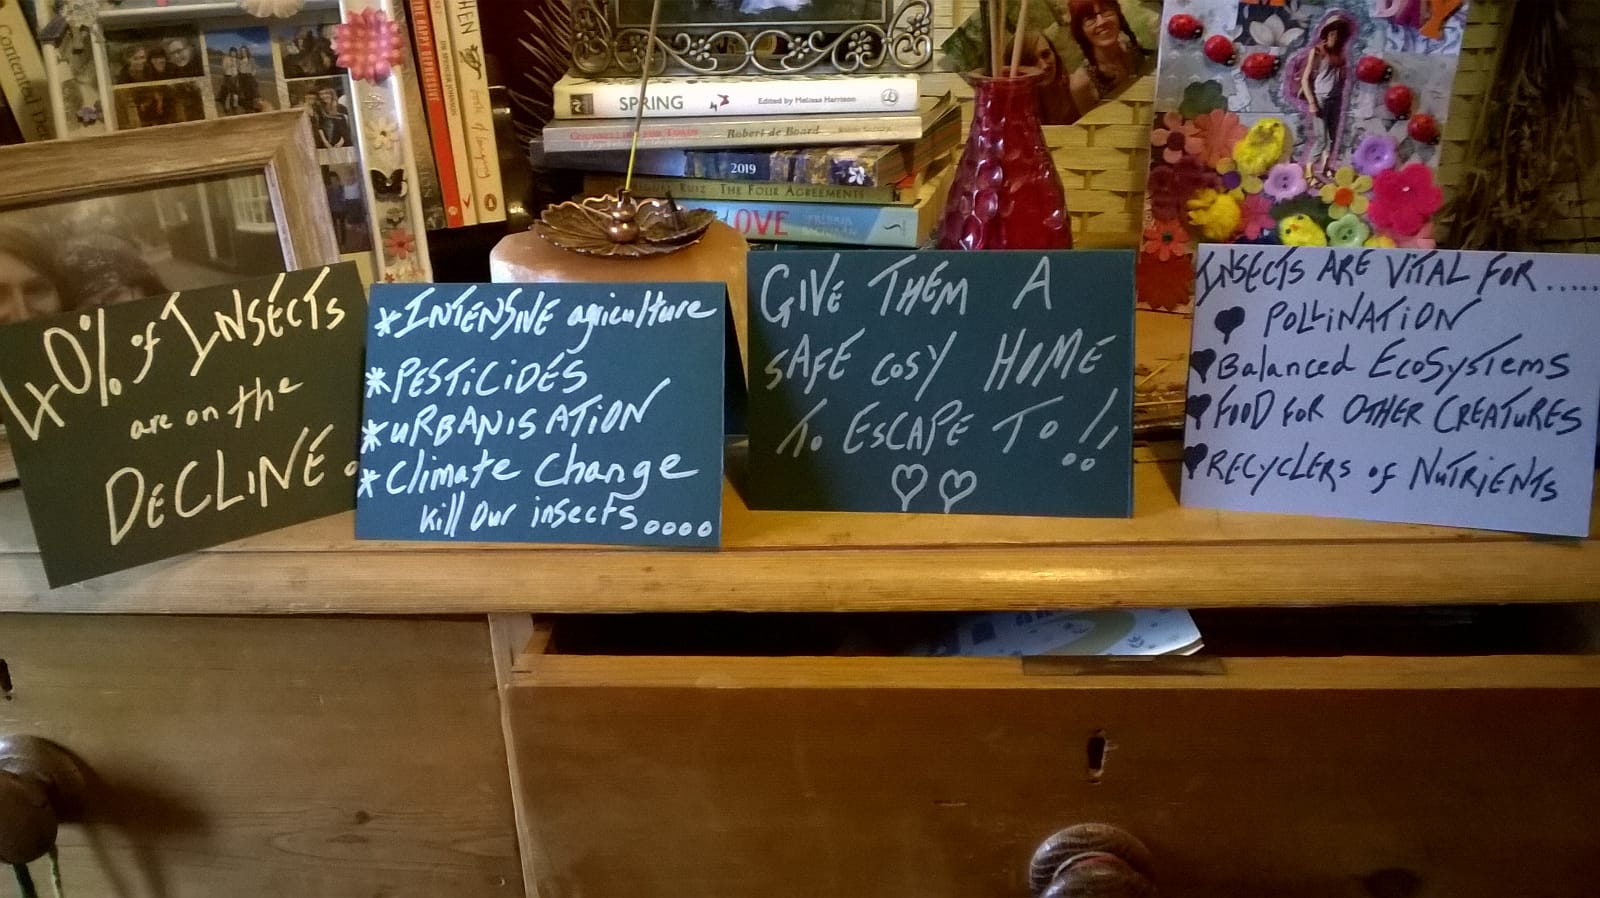 40% of INSECTS
are on the
DECLINE.
*INTENSIVE agriculture
*PESTICIDES
*URBANISATION
*Climate Change
kill our insects....
GIVE THEM A
SAFE COSY HOME
TO ESCAPE TO!!
INSECTS ARE VITAL FOR .....
POLLINATION
Balanced EcoSystems
FOOD FOR OTHER CREATURES
RECYCLERS OF NUTRIENTS
SPRING Edited by Melissa Harrison
COUNSELLING FOR TOADS Robert de Board
2019
RUIZ THE FOUR AGREEMENTS
LOVE
Contented